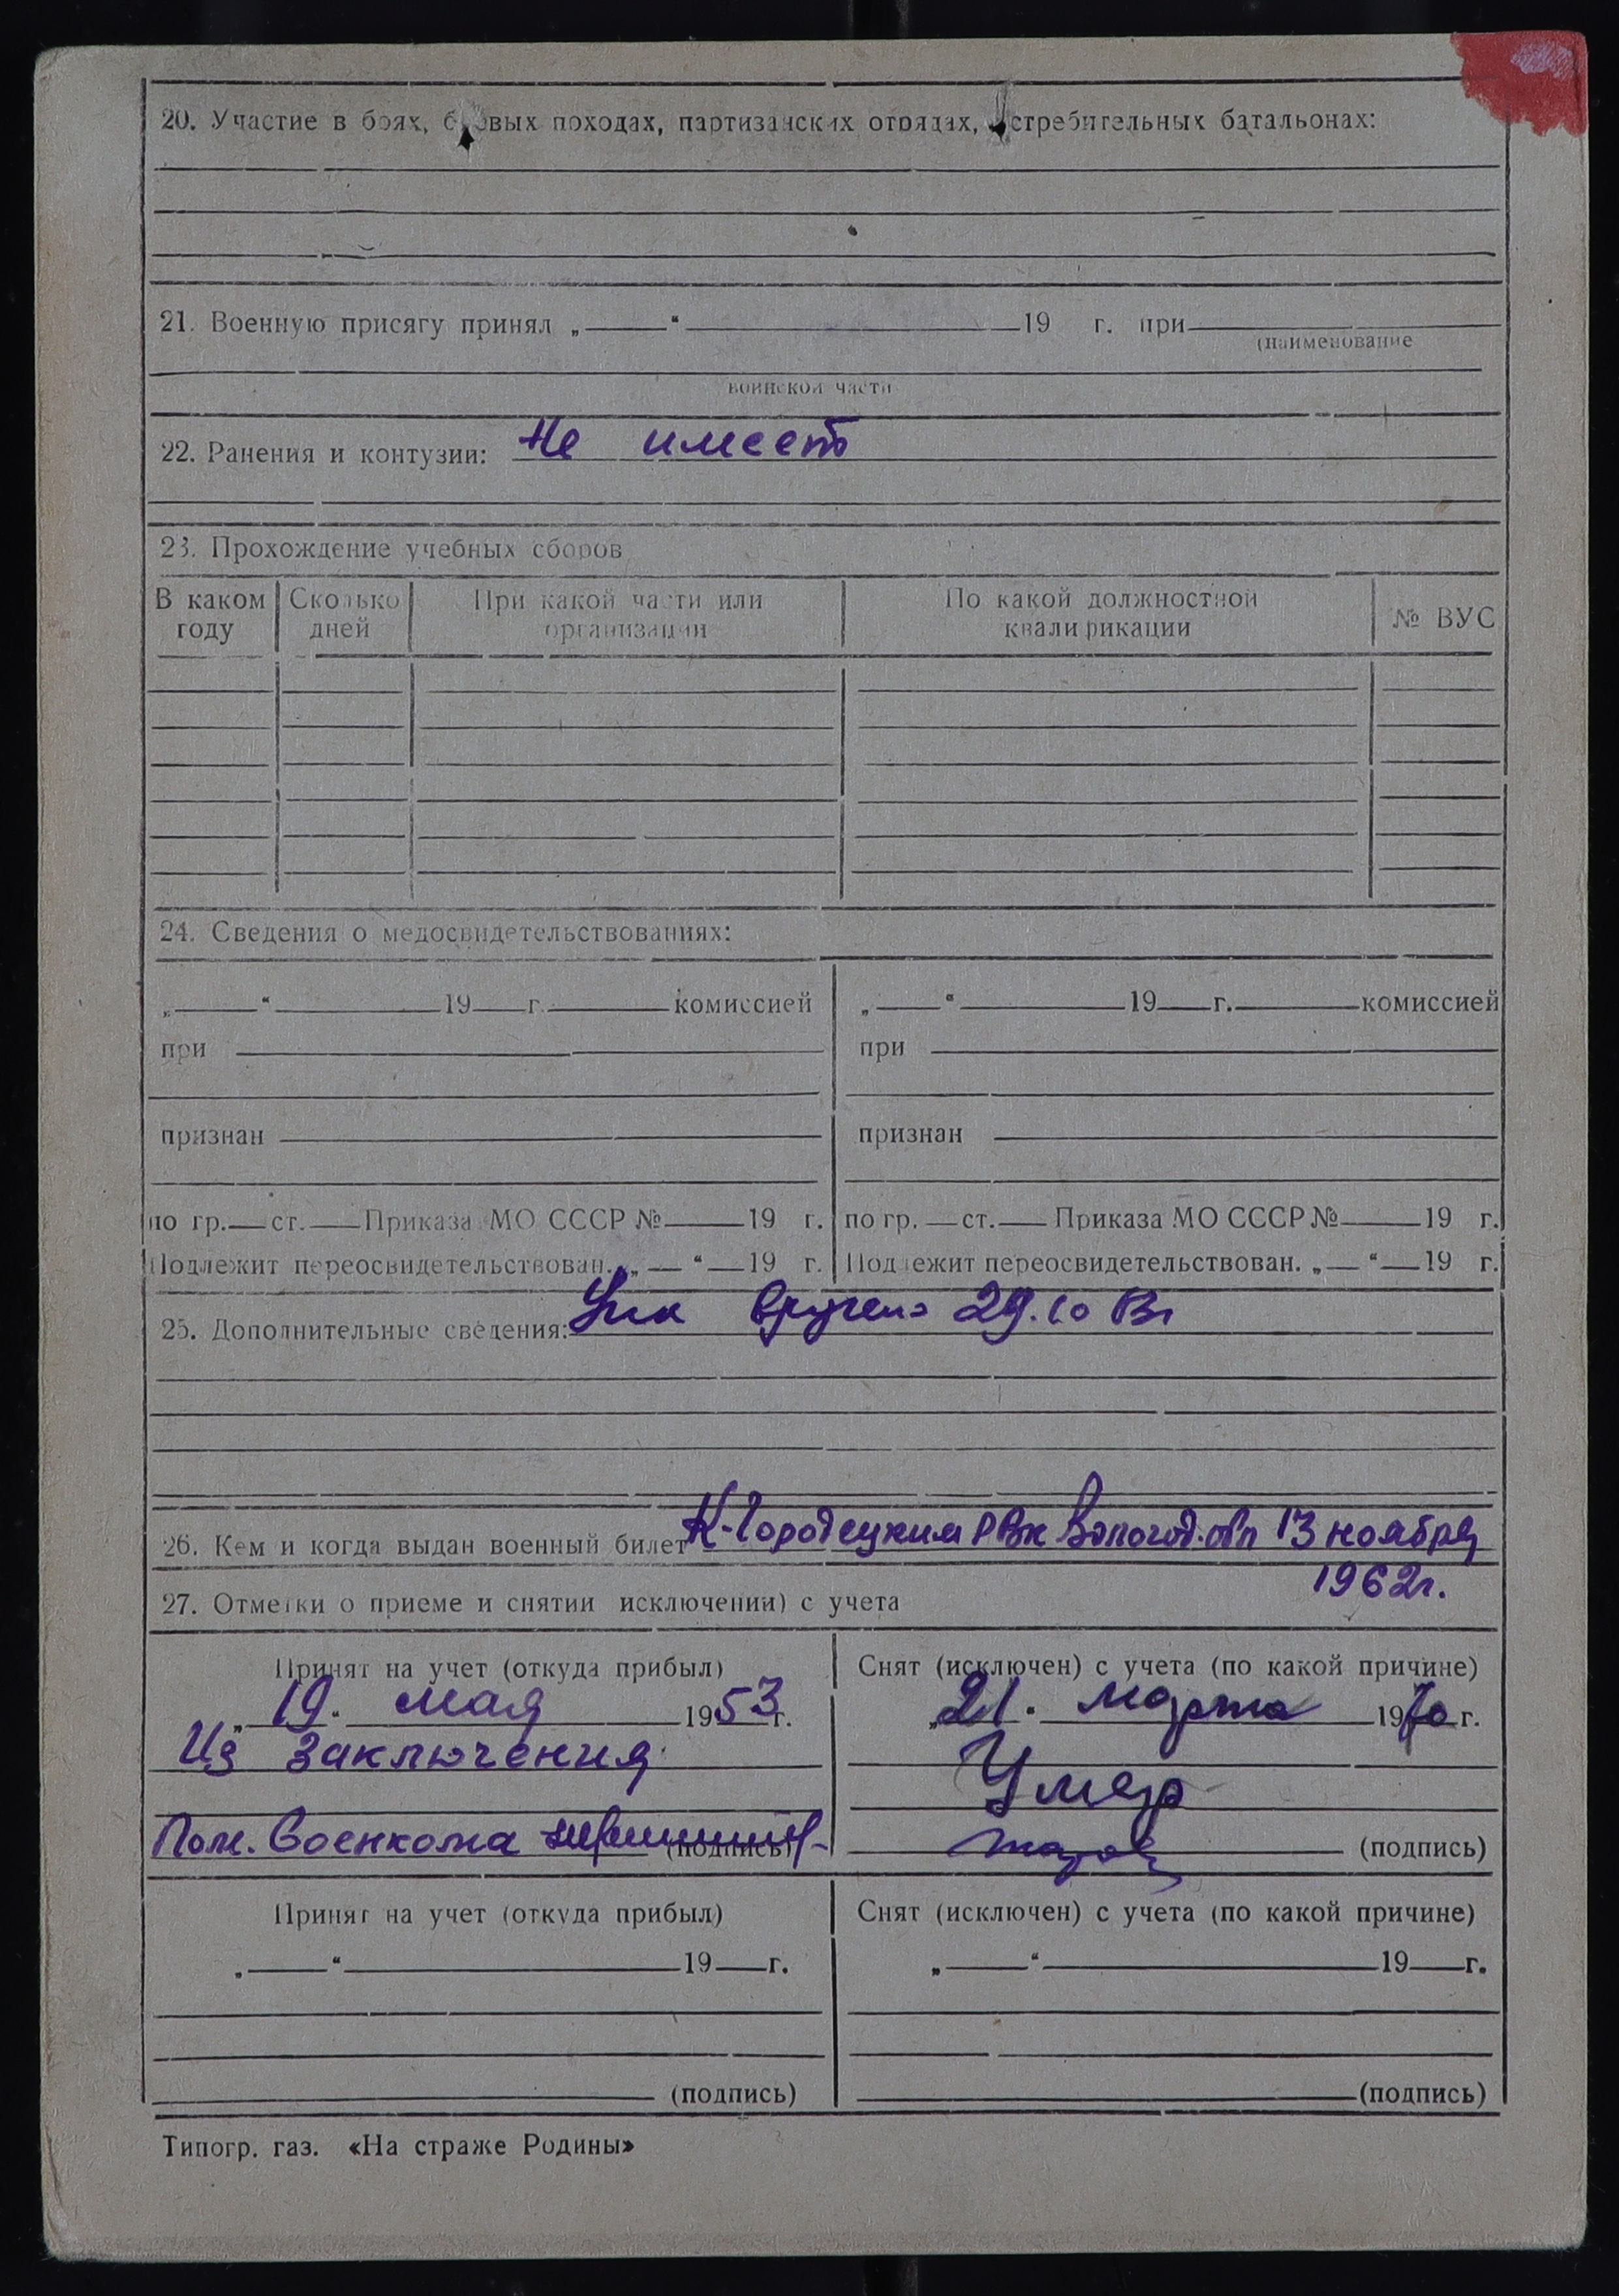 20. Участие в боях, боевых походах, партизанских отрядах, истребительных батальонах:
21. Военную присягу принял „ “ 19 г. при
(наименование
воинской части
22. Ранения и контузии: Не имеет
23. Прохождение учебных сборов
В каком году Сколько дней При какой части или организации По какой должностной квалификации № ВУС
24. Сведения о медосвидетельствованиях:
„ “ 19 г. комиссией „ “ 19 г. комиссией
при при
признан признан
по гр. ст. Приказа МО СССР № 19 г. по гр. ст. Приказа МО СССР № 19 г.
Подлежит переосвидетельствован. „ “ 19 г. Подлежит переосвидетельствован. „ “ 19 г.
25. Дополнительные сведения: вручено 29.10
26. Кем и когда выдан военный билет К-Городецким РВк Вологод. обл 13 ноября
1962г.
27. Отметки о приеме и снятии исключении) с учета
Принят на учет (откуда прибыл) Снят (исключен) с учета (по какой причине)
„19“ мая 1953 г. „21“ марта 1970 г.
Из заключения Умер
Пом. Военкома (подпись) (подпись)
Принят на учет (откуда прибыл) Снят (исключен) с учета (по какой причине)
„ “ 19 г. „ “ 19 г.
(подпись) (подпись)
Типогр. газ. «На страже Родины»